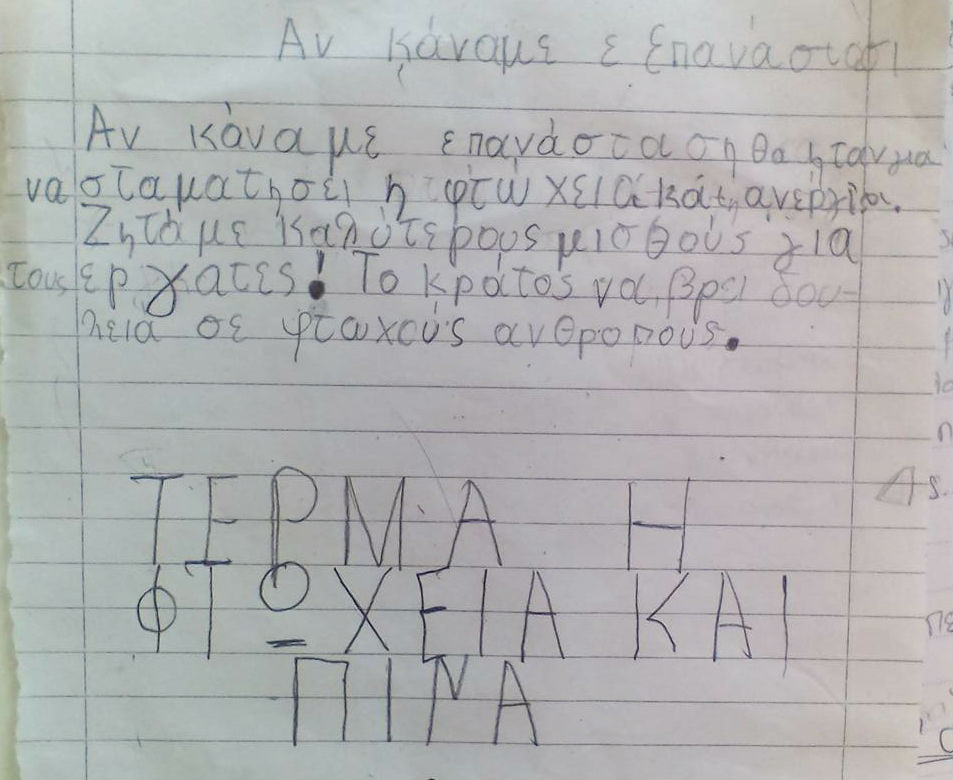 Αν κάναμε ε επανάστασι
Αν κάναμε επανάσταση θα ήταν για
να σταματήσει η φτώχεια κάι η ανεργία.
Ζητάμε καλύτερους μισθούς για
τους εργάτες! Το κράτος να βρει δου-
λειά σε φτωχούς ανθρόπους.
ΤΕΡΜΑ Η
ΦΤΩΧΕΙΑ ΚΑΙ
ΠΙΝΑ